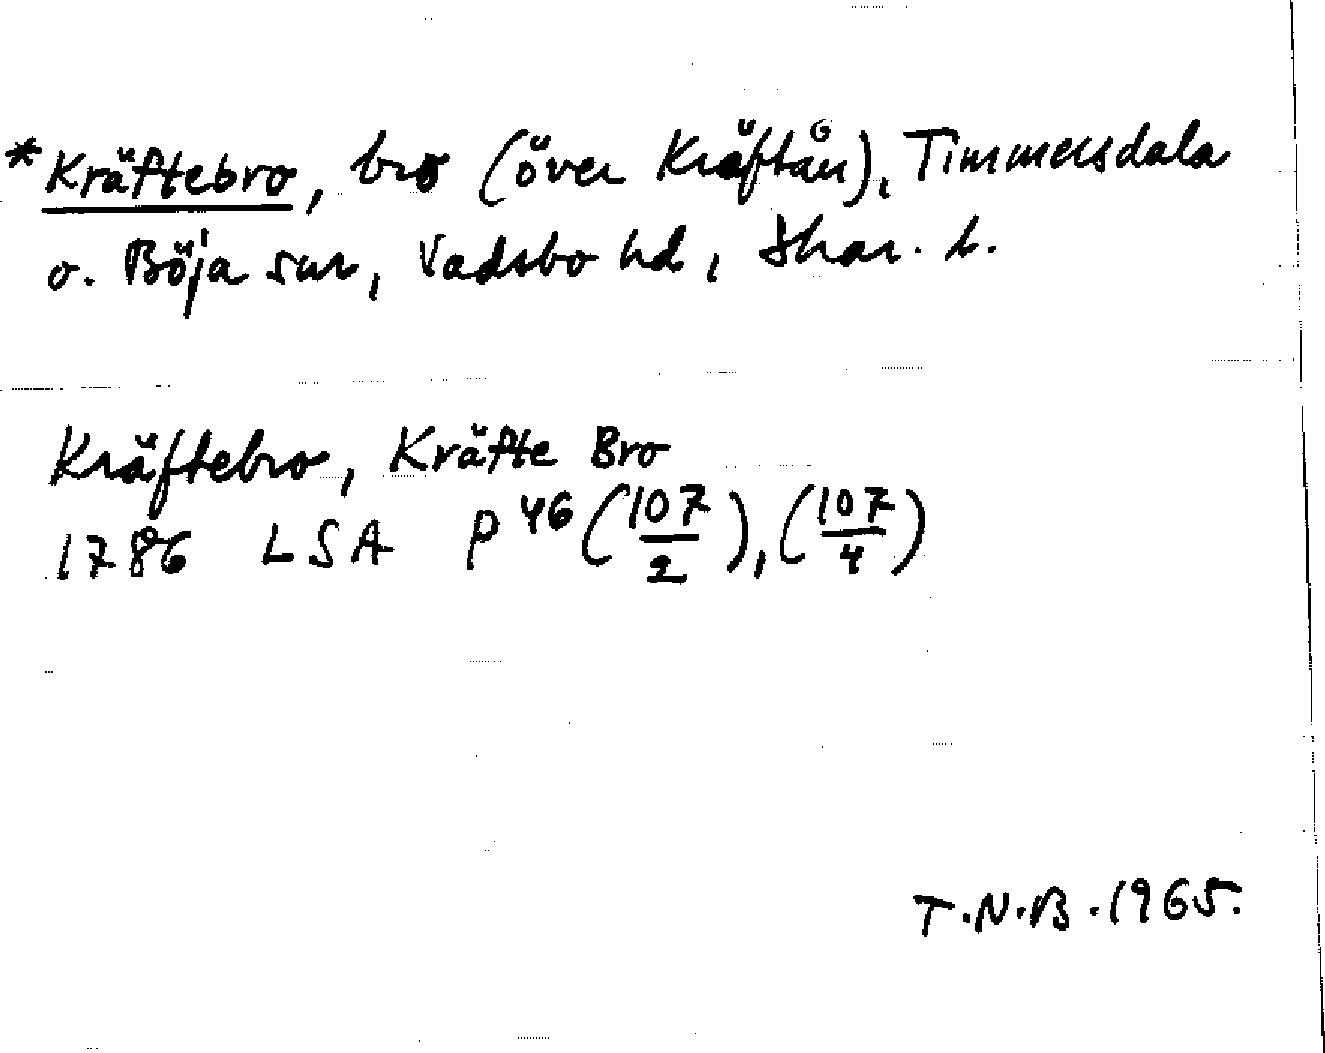 *Kräftebro, bro (över Kräftån), Timmersdala
o. Böja snr, Vadsbo hd, Skar. l.
Kräftebro, Kräfte Bro
1786 LSA P 46 (107/2), (107/4)
T.N.B. 1965.